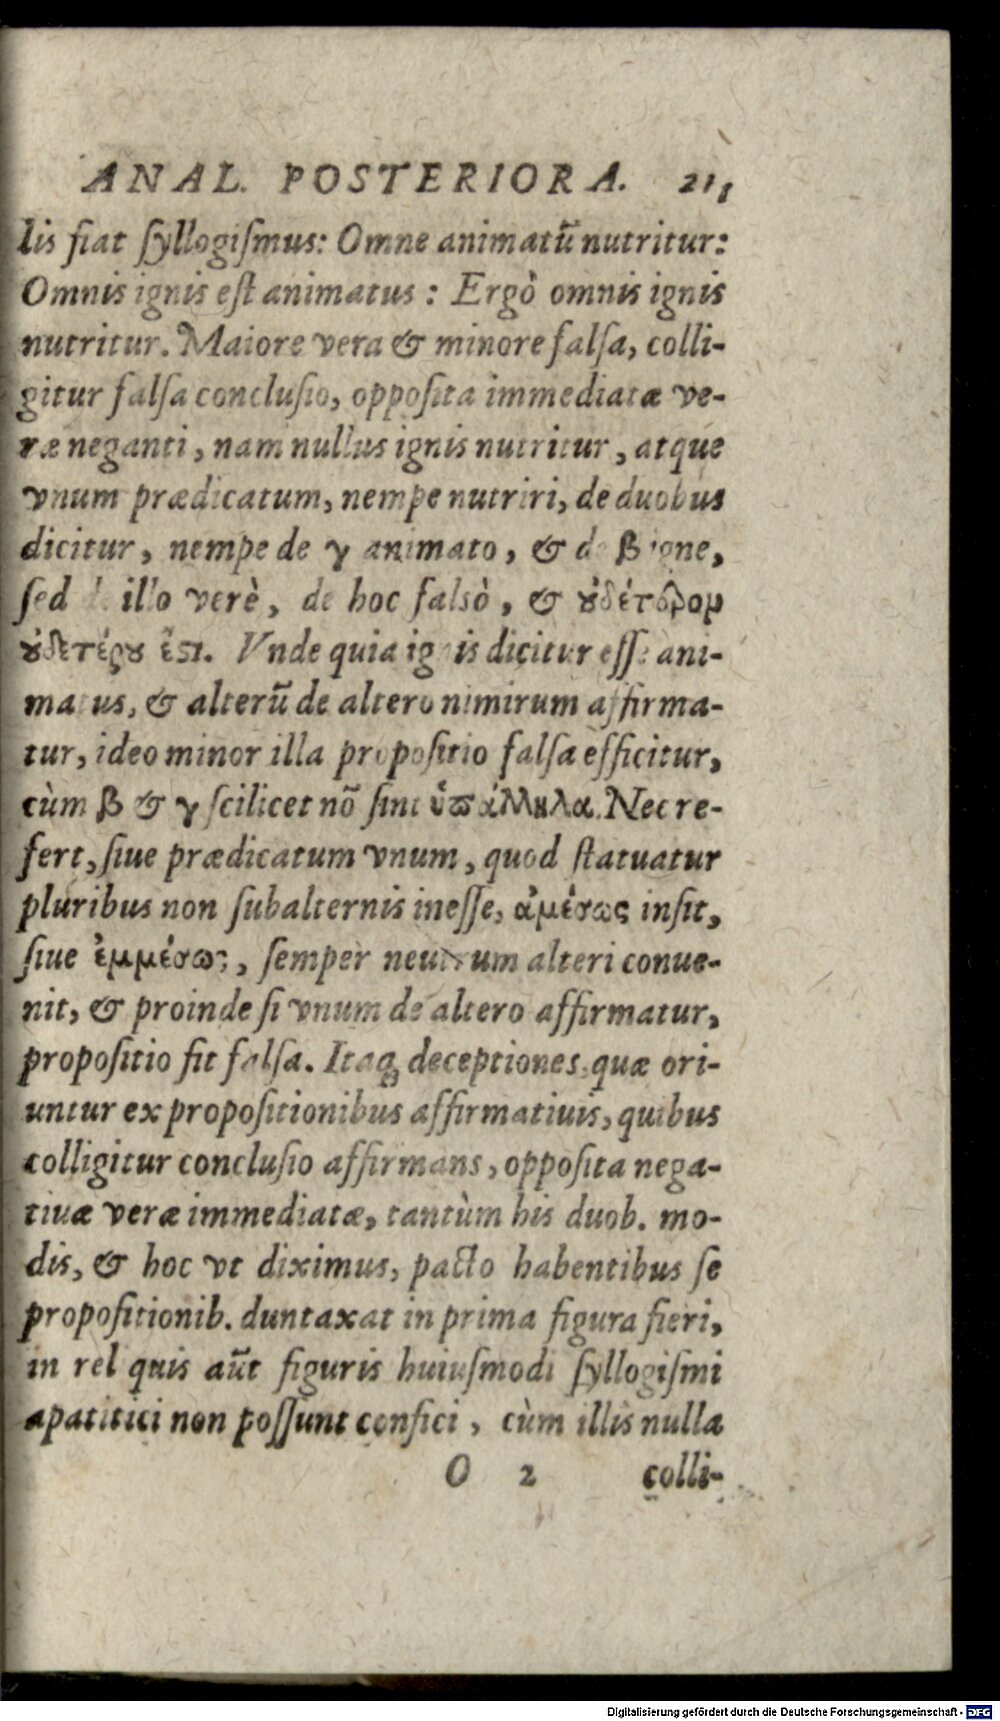 ANAL. POSTERIORA. 211
lis fiat ſyllogiſmus: Omne animatū nutritur:
Omnis ignis eſt animatus : Ergò omnis ignis
nutritur. Maiore vera & minore falſa, colli-
gitur falſa concluſio, oppoſita immediatæ ve-
ræ neganti, nam nullus ignis nutritur, atque
vnum prædicatum, nempe nutriri, de duobus
dicitur, nempe de γ animato, & de β igne,
ſed de illo verè, de hoc falsò, & ȣ̓δέτερομ
ȣ̓δετέρȣ ἐϛι. Vnde quia ignis dicitur eſſe ani-
matus, & alterū de altero nimirum affirma-
tur, ideo minor illa propoſitio falſa efficitur,
cùm β & γ ſcilicet nō ſint ὑπάλληλα. Nec re-
fert, ſiue prædicatum vnum, quod ſtatuatur
pluribus non ſubalternis ineſſe, ἀμέσως inſit,
ſiue ἐμμέσως, ſemper neutrum alteri conue-
nit, & proinde ſi vnum de altero affirmatur,
propoſitio fit falſa. Itaq; deceptiones quæ ori-
untur ex propoſitionibus affirmatiuis, quibus
colligitur concluſio affirmans, oppoſita nega-
tiuæ veræ immediatæ, tantùm his duob. mo-
dis, & hoc vt diximus, pacto habentibus ſe
propoſitionib. duntaxat in prima figura fieri,
in reliquis aūt figuris huiuſmodi ſyllogiſmi
apatitici non poſſunt confici, cùm illis nulla
O 2 colli-
Digitalisierung gefördert durch die Deutsche Forschungsgemeinschaft - DFG